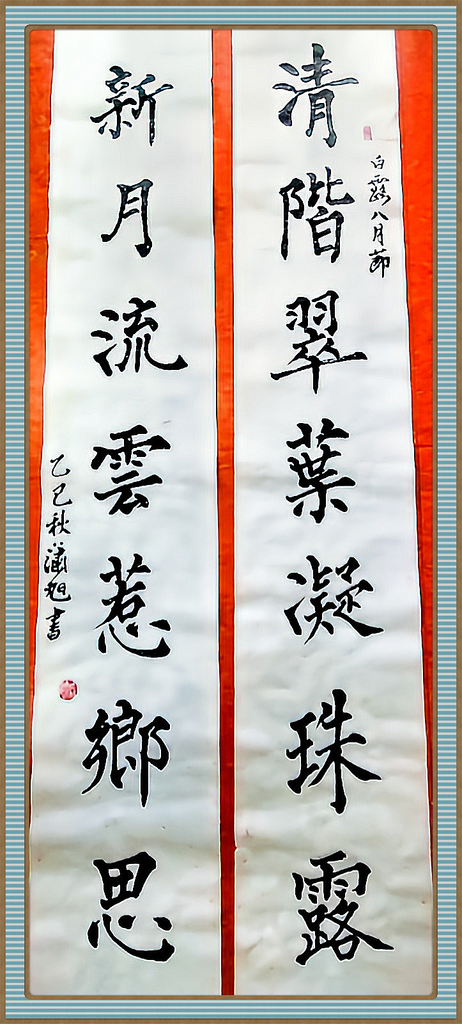 清階翠葉凝珠露
白露八月節
新月流雲惹鄉思
乙巳秋瀟旭書